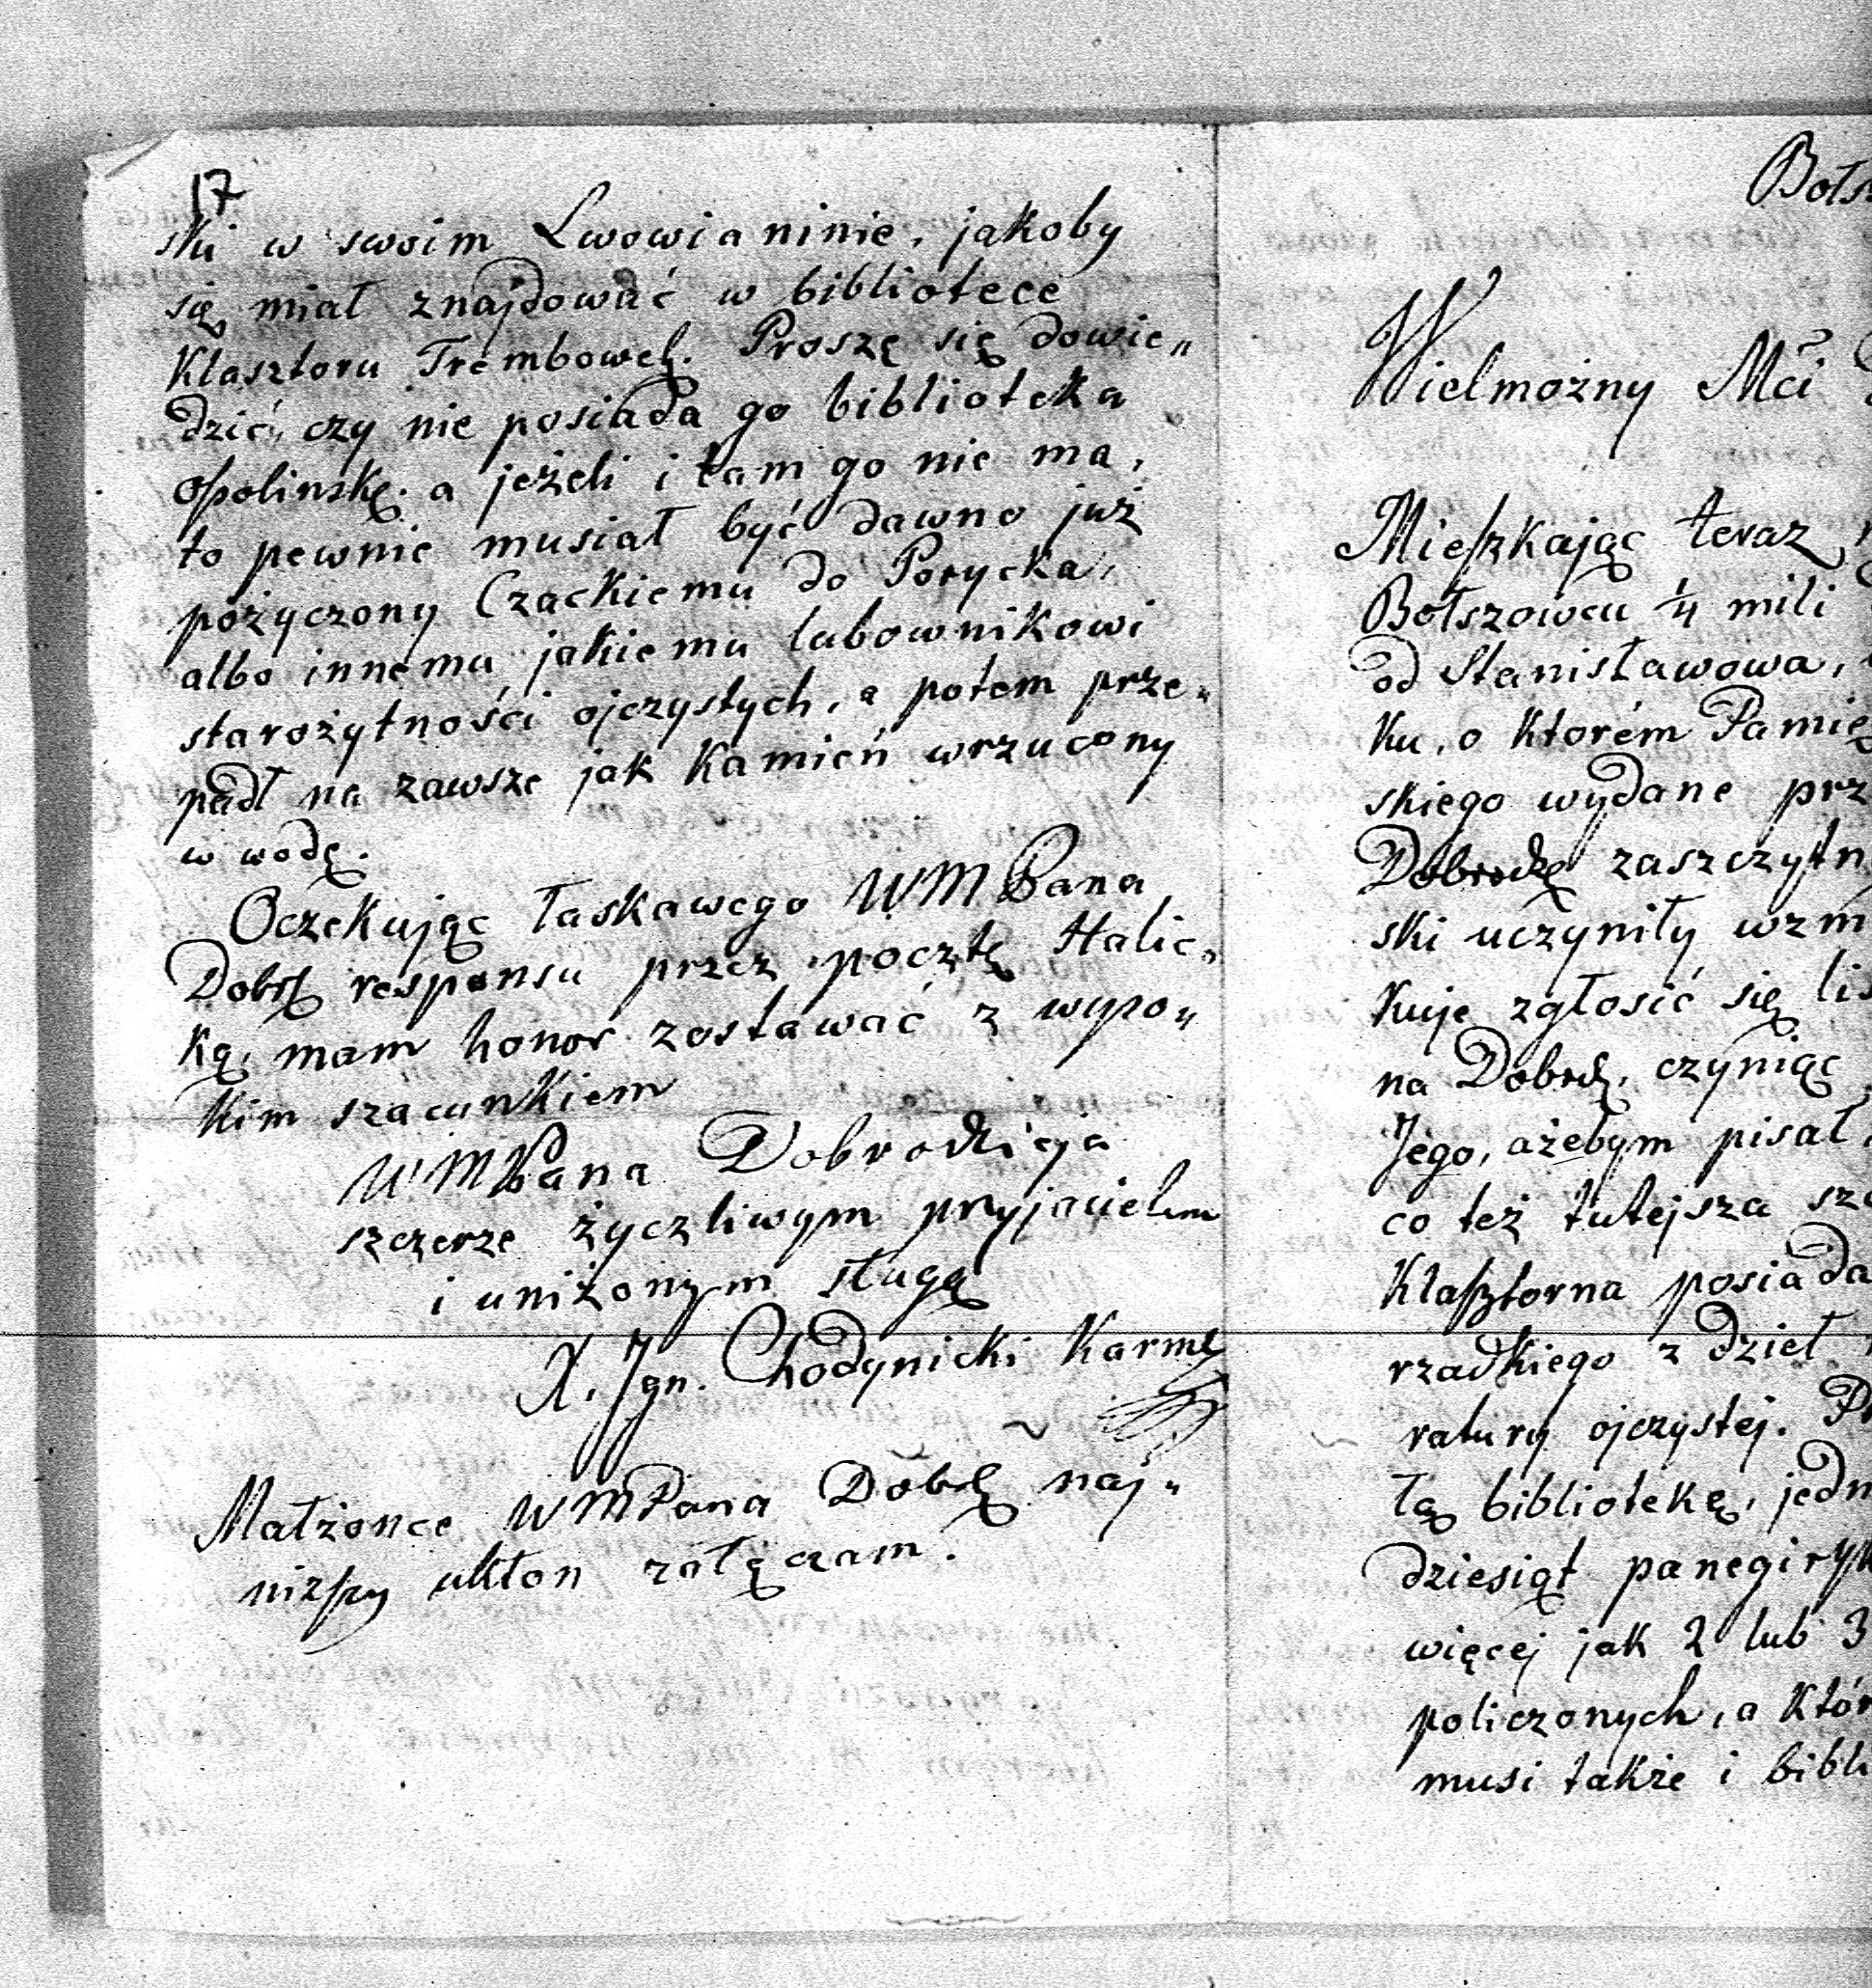 17
ski w swoim Lwowianinie, jakoby
się miał znajdować w bibliotece
Klasztoru Trembowel. Proszę się dowie„
dzić, czy nie posiada go biblioteka
opolinskę. a jeżeli i tam go nie ma,
to pewnie musiał być dawno już
pożyczony Czackiemu do Porycka,
albo innemu jakiemu lubownikowi
starożytności ojczystych, a potem prze„
padł na zawsze jak kamień wrzucony
w wodę.
Oczekując łaskawego WMPana
Dobrdz responsu przez pocztę Halic„
ką, mam honor zostawać z wyso„
kim szacunkiem
WMPana Dobrodzieja
szczerze życzliwym przyjacielem
i uniżonym sługą
X. Ign. Chodynicki Karml
Małżonce WMPana Dobrdz naj„
niższy ukłon załączam.
Bołs
Wielmożny Mci
Mieszkając teraz
Bołszowcu 1/4 mili
od Stanisławowa,
ku, o ktorém Pamię
skiego wydane prz
Dobrodzę zaszczytn
ski uczyniły wzm
kuje zgłosić się lis
na Dobrdz, czyniąc
Jego, ażebym pisał,
co też tutejsza szc
Klasztorna posiada
rzadkiego z dzieł
ratury ojczystej. Pr
łą bibliotekę, jedn
dziesiąt panegiryk
więcej jak 2 lub 3
policzonych, a któr
musi także i bibli